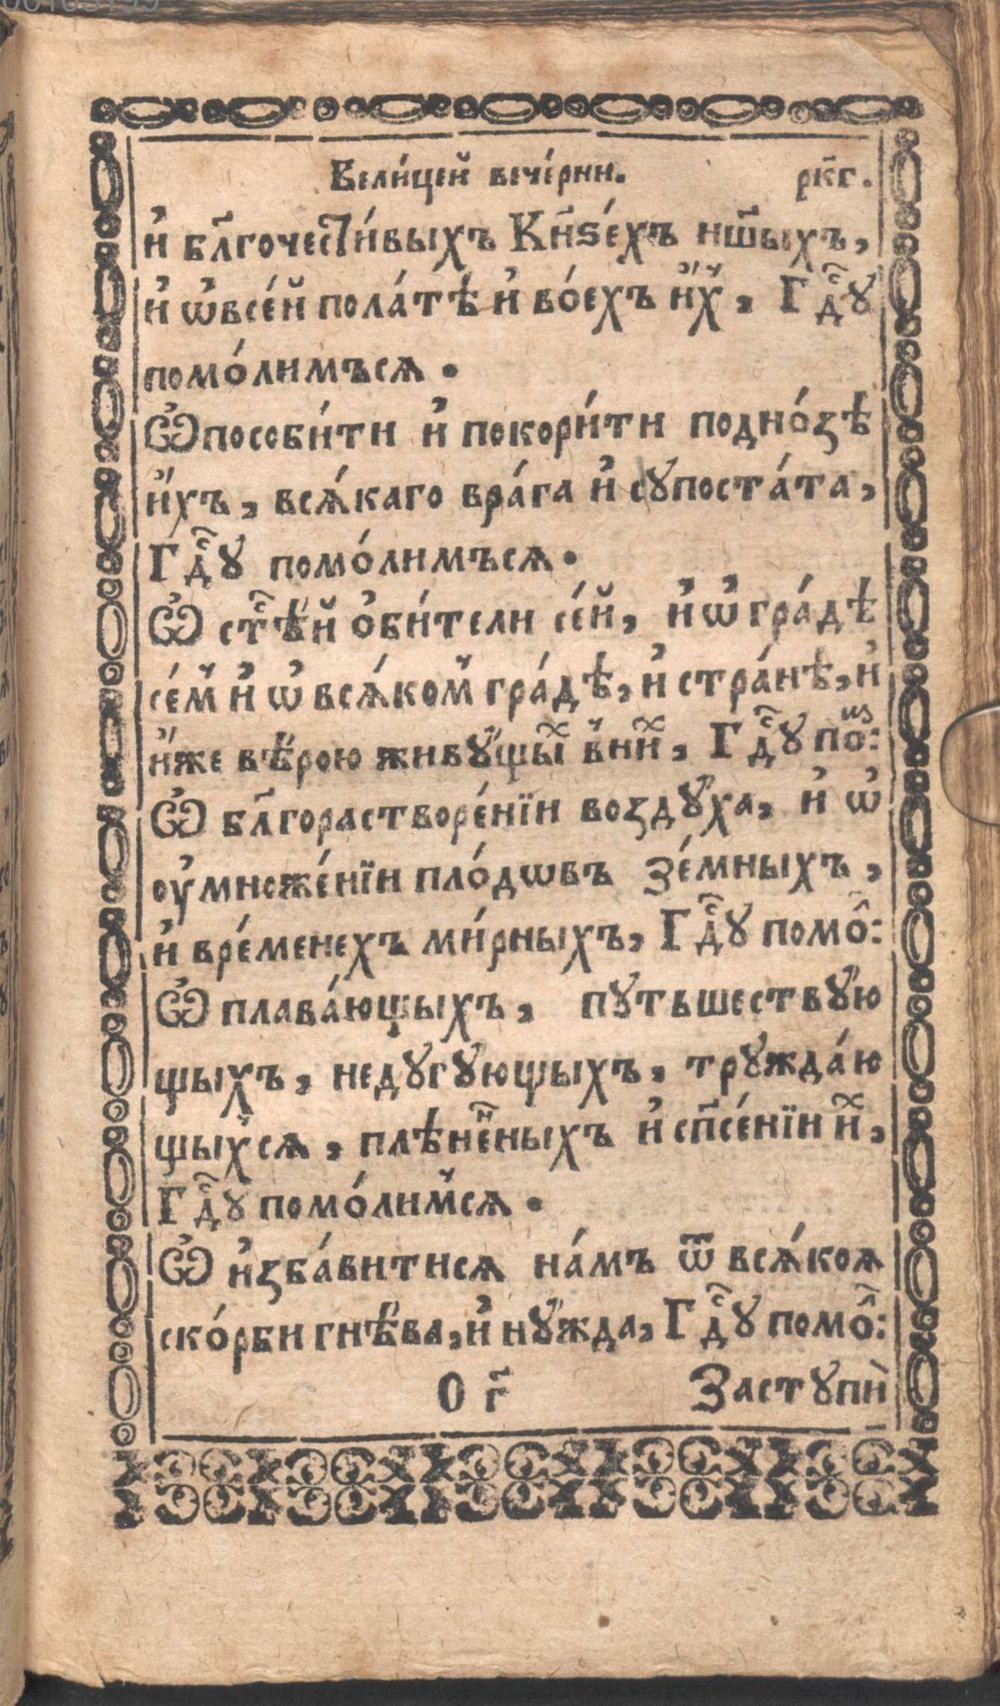 Вели́цей вече́рни. рк҃г.
и҆ бл҃гочести́выхъ Кн҃ѕе́хъ нш҃ыхъ,
и҆ ѡ҆всей пола́тѣ и҆ во́ехъ и҆́х, Гдⷭ҇ꙋ
помо́лимъсѧ .
Ѡ҆пособи́ти и҆ покори́ти подно́зѣ
и҆́хъ, всѧ́каго вра́га и҆ сꙋпоста́та,
Гдⷭ҇ꙋ помо́лимъсѧ.
Ѡ҆ стⷭ҇ѣй ѻ҆би́тели се́й, и҆ ѡ҆ гра́дѣ
се́м и҆ ѡ҆ всѧ́ком гра́дѣ, и҆ стра́нѣ, и҆
и҆́же вѣ́рою живꙋ́щыⷯ в ниⷯ, Гдⷭ҇ꙋ по:
Ѡ҆ бл҃горастворе́нїи воздꙋ́ха, и҆ ѡ҆
оу҆множе́нїи пло́дѡвъ зе́мныхъ,
и҆ вре́менехъ ми́рныхъ, Гдⷭ҇ꙋ помо:
Ѡ҆ плава́ющыхъ, пꙋтьшествꙋ́ю
щыхъ, недꙋ́гꙋющыхъ, трꙋжда́ю
щыхсѧ, плѣнеⷩ҇ныхъ и҆ сп҃се́нїи иⷯ,
Гдⷭ҇ꙋ помо́лимсѧ .
Ѡ҆ и҆зба́витисѧ на́мъ ѿ всѧ́коѧ
ско́рби гнѣ́ва, и҆ нꙋ́жда, Гдⷭ҇ꙋ помо:
О г҃ Застꙋпи̇̀